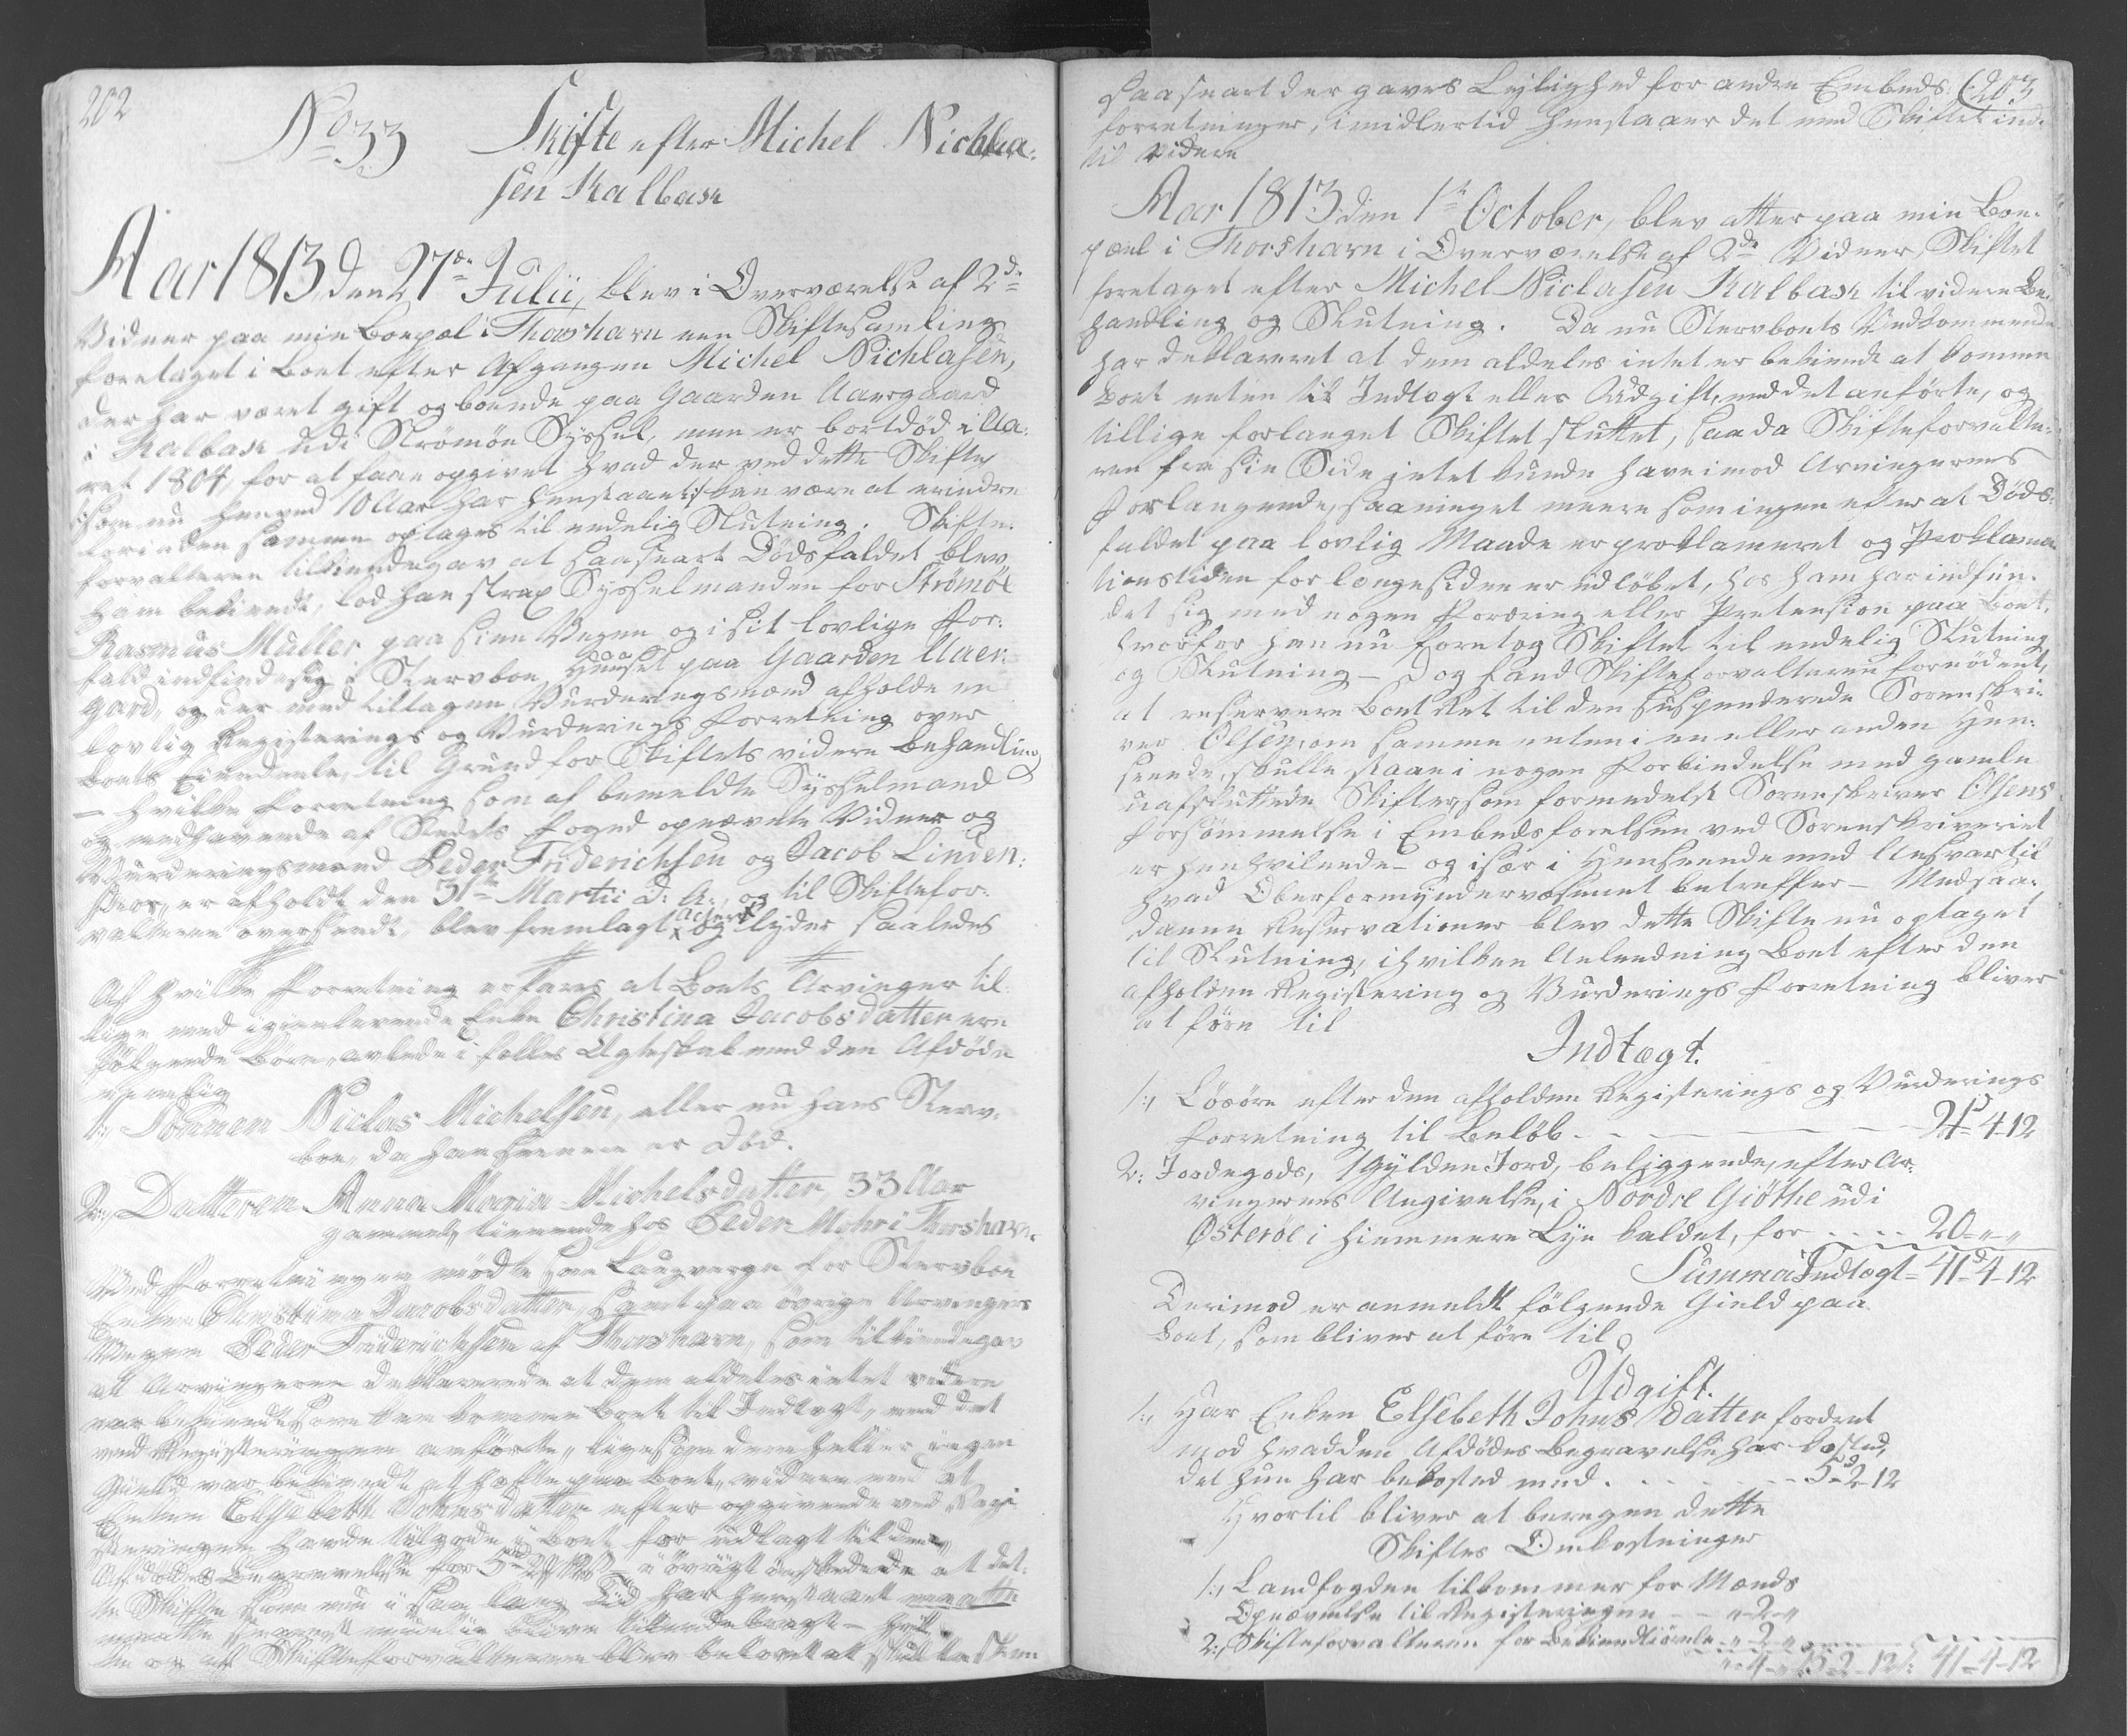 202
No 33 Skifte efter Michel Nichla-
sen Kalbak
Aar 1813 den 27de Julii, blev i Overværelse af 2de
Vidner paa min Boepæl i Thorshavn een Skiftesamling
foretaget i Boet efter Afgangne Michel Nichlasen,
der har været gift og boende paa Gaarden Uaergaard
i Kalbak udi Strömöe Syssel, men er bortdöd i Aa-
ret 1804, for at faae opgivet hvad der ved dette Skifte
som nu henved 10 Aar har henstaaet kan være at erindre
forinden samme optages til endelig Slutning. Skifte-
forvalteren tilkiendegav at saasnart Dödsfaldet blev
ham bekiendt, lod han strax Sysselmanden for Strömöe
Rasmus Müller paa sine Vegne og i sit lovlige For-
fald indfinde sig i Stervboe Huuset paa Gaarden Uaer-
gard, og der med tiltagne Vurderingsmænd afholde en
lovlig Registerings og Vurderings Forretning over
Boets Eiendeele, til Grund for Skiftets videre Behandling
– hvilke Forretning som af bemeldte Sysselmand
og medhavende af Stedets Foged opnævnte Vidner og
Vurderingsmænd Peder Friderichsen og Jacob Linden-
skov, er afholdt den 31te Martii d: A:, og til Skiftefor-
valteren oversendt, blev fremlagt og lyder saaledes
Af hvilke Forretning erfares at Boets Arvinger til-
lige med igienlevende Enke Christina Jacobsdatter ere
fölgende Börn avlede i fælles Ægteskab med den Afdöde
nemlig
1:, Sönnen Niclas Michelsen, eller nu hans Sterv-
boe, da han senere er Död.
2:, Datteren Anna Maria Michelsdatter, 33 Aar
gammel, tienende hos Peder Mohr i Thorshavn.
Ved Forretningen mödte som Laugverge for Stervboe
Enken Christina Jacobsdatter, samt paa övrige Arvingers
Vegne Peder Friderichsen af Thorshavn, som tilkiendegav
at Arvingerne deklarerede at dem aldeles intet videre
var bekiendt som kan komme Boet til Indtægt, end det
ved Registeringen anförte, ligesom dem heller ingen
Gield var bekiendt at hæfte paa Boet, videre end at
Enken Elsebeth Johnsdatter efter opgivende ved Regi-
steringen havde tilgode i Boet for udlagt til den
Afdödes Begravelse for 5 2 12 i övrigt önskede at det-
te Skifte som nu i saa lang Tid har henstaaet
maatte snarest muelig blive tilendebragt – hvil-
ket og af Skifteforvalteren blev belovet at skulle skee
203
saasnart der gaves Leylighed for andre Embeds
forretninger, imidlertid henstaaer det med Skiftet ind-
til videre
Aar 1813 den 1te October, blev atter paa min Boe-
pæl i Thorshavn i Overværelse af 2de Vidner, Skiftet
foretaget efter Michel Niclasen Kalbak til videre Be-
handling og Slutning. Da nu Stervboets Vedkommende
har deklareret at dem aldeles intet er bekiendt at komme
Boet enten til Indtægt eller Udgift, end det anförte, og
tillige forlanget Skiftet sluttet, saa da Skifteforvalte-
ren fra sin Side intet kunde have imod Arvingernes
Forlangende, saa meget meere som ingen efter at Döds-
faldet paa lovlig Maade er proklameret og Proklama-
tionstiden for længe siden er udlöbet, hos ham har indfun-
det sig med nogen Fordring eller Pretension paa Boet,
hvorfor han nu foretog Skiftet til endelig Slutning
og Slutning – Dog fandt Skifteforvalteren fornödent,
at reservere Boet Ret til den suspenderede Sorenskri-
ver Olsen, om samme enten i en eller anden Hen-
seende, skulle staae i nogen Forbindelse med gamle
uafsluttede Skifter, som formedelst Sorenskriver Olsens
Forsömmelse i Embedsförelsen ved Sorenskriveriet
er henhvilende – og især i Henseende med Ansvar til
hvad Oberformyndervæsenet betreffer – Med saa-
danne Reservationer blev dette Skifte nu optaget
til Slutning, i hvilken Anledning Boet efter den
afholdne Registering og Vurderings Forretning bliver
at före til
Indtægt.
1:, Lösöre efter den afholdne Registerings og Vurderings
Forretning til Belöb – – – 21-4-12
2: Jordegods, 1 Gylden Jord, beliggende, efter Ar-
vingernes Angivelse, i Nordre Giöthe udi
Österöe i Hiemmere Lye kaldet, for .... 20-"-"
Summa Indtægt – 41-4-12
Derimod er anmeldt fölgende Gield paa
Boet, som bliver at före til
Udgift.
1:, Har Enken Elsebeth Johns datter fordret
mod hvad den Afdödes Begravelse har kostet,
det hun har bekostet med . . . . . 5-2-12
Hvortil bliver at beregne dette
Skiftes Omkostninger
1:, Landfogden tilkommer for Mænds
Opnævnelse til Registeringen – – "-2-"
2:, Skifteforvalteren for Bekiendtiörelse "-2-"
"-4-" 5-2-12 41-4-12